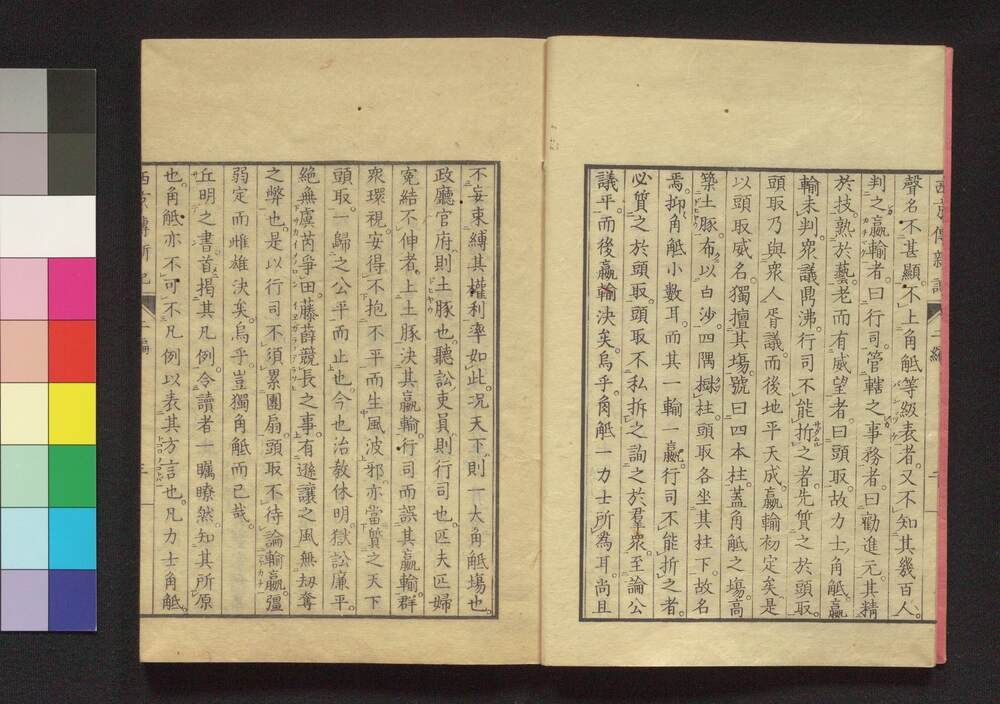 聲名不甚顯。不上角觝等級表者。又不知其幾百人。
判之贏輸者。曰行司。管轄之事務者。曰勸進元。其精
於技。熟於藝。老而有威望者。曰頭取。故力士角觝。贏
輸未判。衆議鼎沸。行司不能折之者。先質之於頭取。
頭取乃與衆人胥議。而後地平天成。贏輸初定矣。是
以頭取威名。獨擅其塲。號曰四本柱。蓋角觝之塲。高
築土豚。布以白沙。四隅樹柱。頭取各坐其柱下。故名
焉。抑角觝小數耳。而其一輸一贏。行司不能折之者。
必質之於頭取。頭取不私拆之。詢之於羣衆。至論公
議平。而後贏輸決矣。烏乎。角觝一力士所爲耳。尚且
不妄束縛其權利率如此。况天下則一大角觝塲也。
政廳官府。則土豚也。聽訟吏員則行司也。匹夫匹婦
寃結不伸者。上土豚決其贏輸。行司而誤其贏輸。群
衆環視。安得不抱不平而生風波邪。亦當質之天下
頭取。一歸之公平而止也。今也治敎休明。獄訟廉平。
絕無虞芮爭田。藤薛競長之事。有遜讓之風無刼奪
之弊也。是以行司不須累團扇。頭取不待論輸贏。彊
弱定而雌雄決矣。烏乎豈獨角觝而已哉。
丘明之書。首揭其凡例。令讀者一矚瞭然。知其所原
也。角觝亦不可不凡例以表其方言也。凡力士角觝。